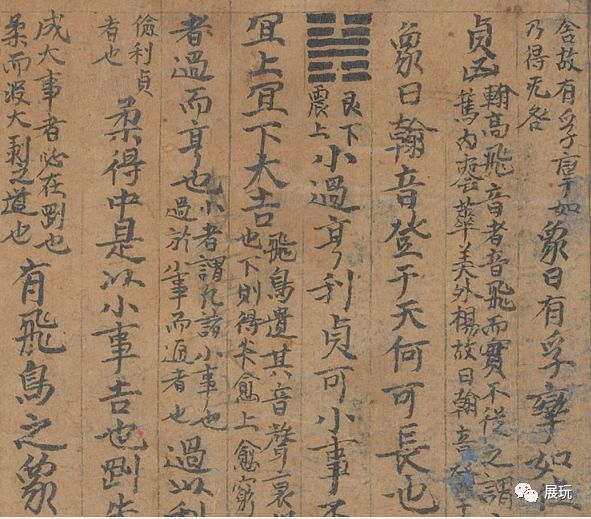 舍故有孚孿如
乃得无咎
象曰有孚孿如位
貞凶
翰高飛音者音飛而實不從之謂
篤內喪華美外揚故曰翰音登于
象曰翰音登于天何可長也
艮下
震上
小過亨利貞可小事不
宜上宜下大吉
飛鳥遺其音聲哀以
也下則得安愈上愈窮
者過而亨也
小者謂凡諸小事也
過於小事而通者也
過以利
儉利貞
者也
柔得中是以小事吉也剛失
成大事者必在剛也
柔而浸大剝之道也
有飛鳥之象
展玩